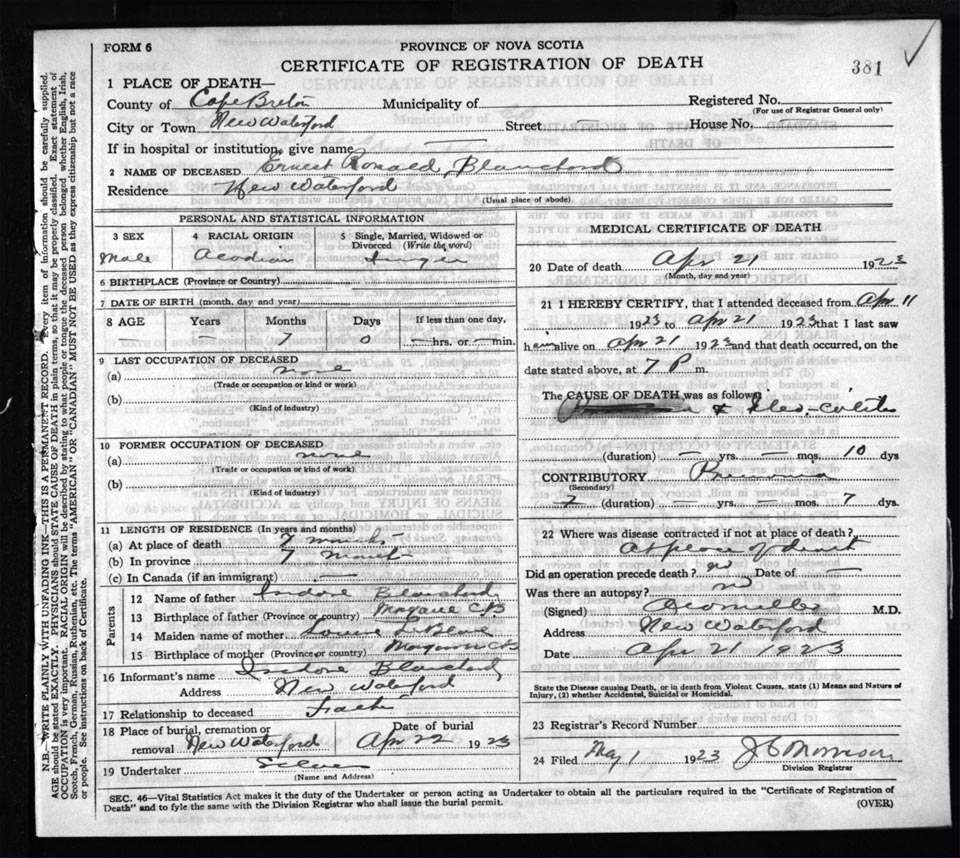 FORM 6
PROVINCE OF NOVA SCOTIA
CERTIFICATE OF REGISTRATION OF DEATH
381
1 PLACE OF DEATH—
County of Cape Breton Municipality of Registered No.
(For use of Registrar General only)
City or Town New Waterford Street — House No.
If in hospital or institution, give name —
2 NAME OF DECEASED Ernest Ronald Blanchard
Residence New Waterford
(Usual place of abode)
PERSONAL AND STATISTICAL INFORMATION
3 SEX
Male
4 RACIAL ORIGIN
Acadian
5 Single, Married, Widowed or Divorced (Write the word)
Single
6 BIRTHPLACE (Province or Country)
7 DATE OF BIRTH (month, day and year)
8 AGE Years Months Days If less than one day,
— 7 0 — hrs. or — min.
9 LAST OCCUPATION OF DECEASED
(a) none
(Trade or occupation or kind or work)
(b)
(Kind of industry)
10 FORMER OCCUPATION OF DECEASED
(a) none
(Trade or occupation or kind of work)
(b)
(Kind of industry)
11 LENGTH OF RESIDENCE (In years and months)
(a) At place of death 7 months
(b) In province 7 months
(c) In Canada (if an immigrant) —
Parents
12 Name of father Isidore Blanchard
13 Birthplace of father (Province or country) C B
14 Maiden name of mother Louise LeBlanc
15 Birthplace of mother (Province or country) C B
16 Informant's name Isidore Blanchard
Address New Waterford
17 Relationship to deceased Father
18 Place of burial, cremation or removal New Waterford
Date of burial
Apr 22 1923
19 Undertaker
(Name and Address)
MEDICAL CERTIFICATE OF DEATH
20 Date of death Apr 21 1923
(Month, day and year)
21 I HEREBY CERTIFY, that I attended deceased from Apr 11
1923 to Apr 21 1923 that I last saw
him alive on Apr 21 1923 and that death occurred, on the
date stated above, at 7 P m.
The CAUSE OF DEATH was as follows:
& Ileo-Colitis
(duration) — yrs. — mos. 10 dys
CONTRIBUTORY
(Secondary)
(duration) — yrs. — mos. 7 dys.
22 Where was disease contracted if not at place of death?
At place of death
Did an operation precede death? no Date of —
Was there an autopsy? no
(Signed) M.D.
Address New Waterford
Date Apr 21 1923
State the Disease causing Death, or in death from Violent Causes, state (1) Means and Nature of
Injury, (2) whether Accidental, Suicidal or Homicidal.
23 Registrar's Record Number
24 Filed May 1 1923 J C Morrison
Division Registrar
SEC. 46—Vital Statistics Act makes it duty of the Undertaker or person acting as Undertaker to obtain all the particulars required in the "Certificate of Registration of
Death" and to fyle the same with the Division Registrar who shall issue the burial permit.
(OVER)
N.B.—WRITE PLAINLY WITH UNFADING INK—THIS IS A PERMANENT RECORD. Every item of information should be carefully supplied.
AGE should be stated EXACTLY. PHYSICIANS should STATE CAUSE OF DEATH in plain terms, so that it may be properly classified. Exact statement of
OCCUPATION is very important. RACIAL ORIGIN will be described by stating to what people or tongue the deceased person belonged, whether English, Irish,
Scotch, French, German, Russian, Ruthenian, etc. The terms "AMERICAN" OR "CANADIAN" MUST NOT BE USED as they express citizenship but not a race
or people. See instructions on back of Certificate.